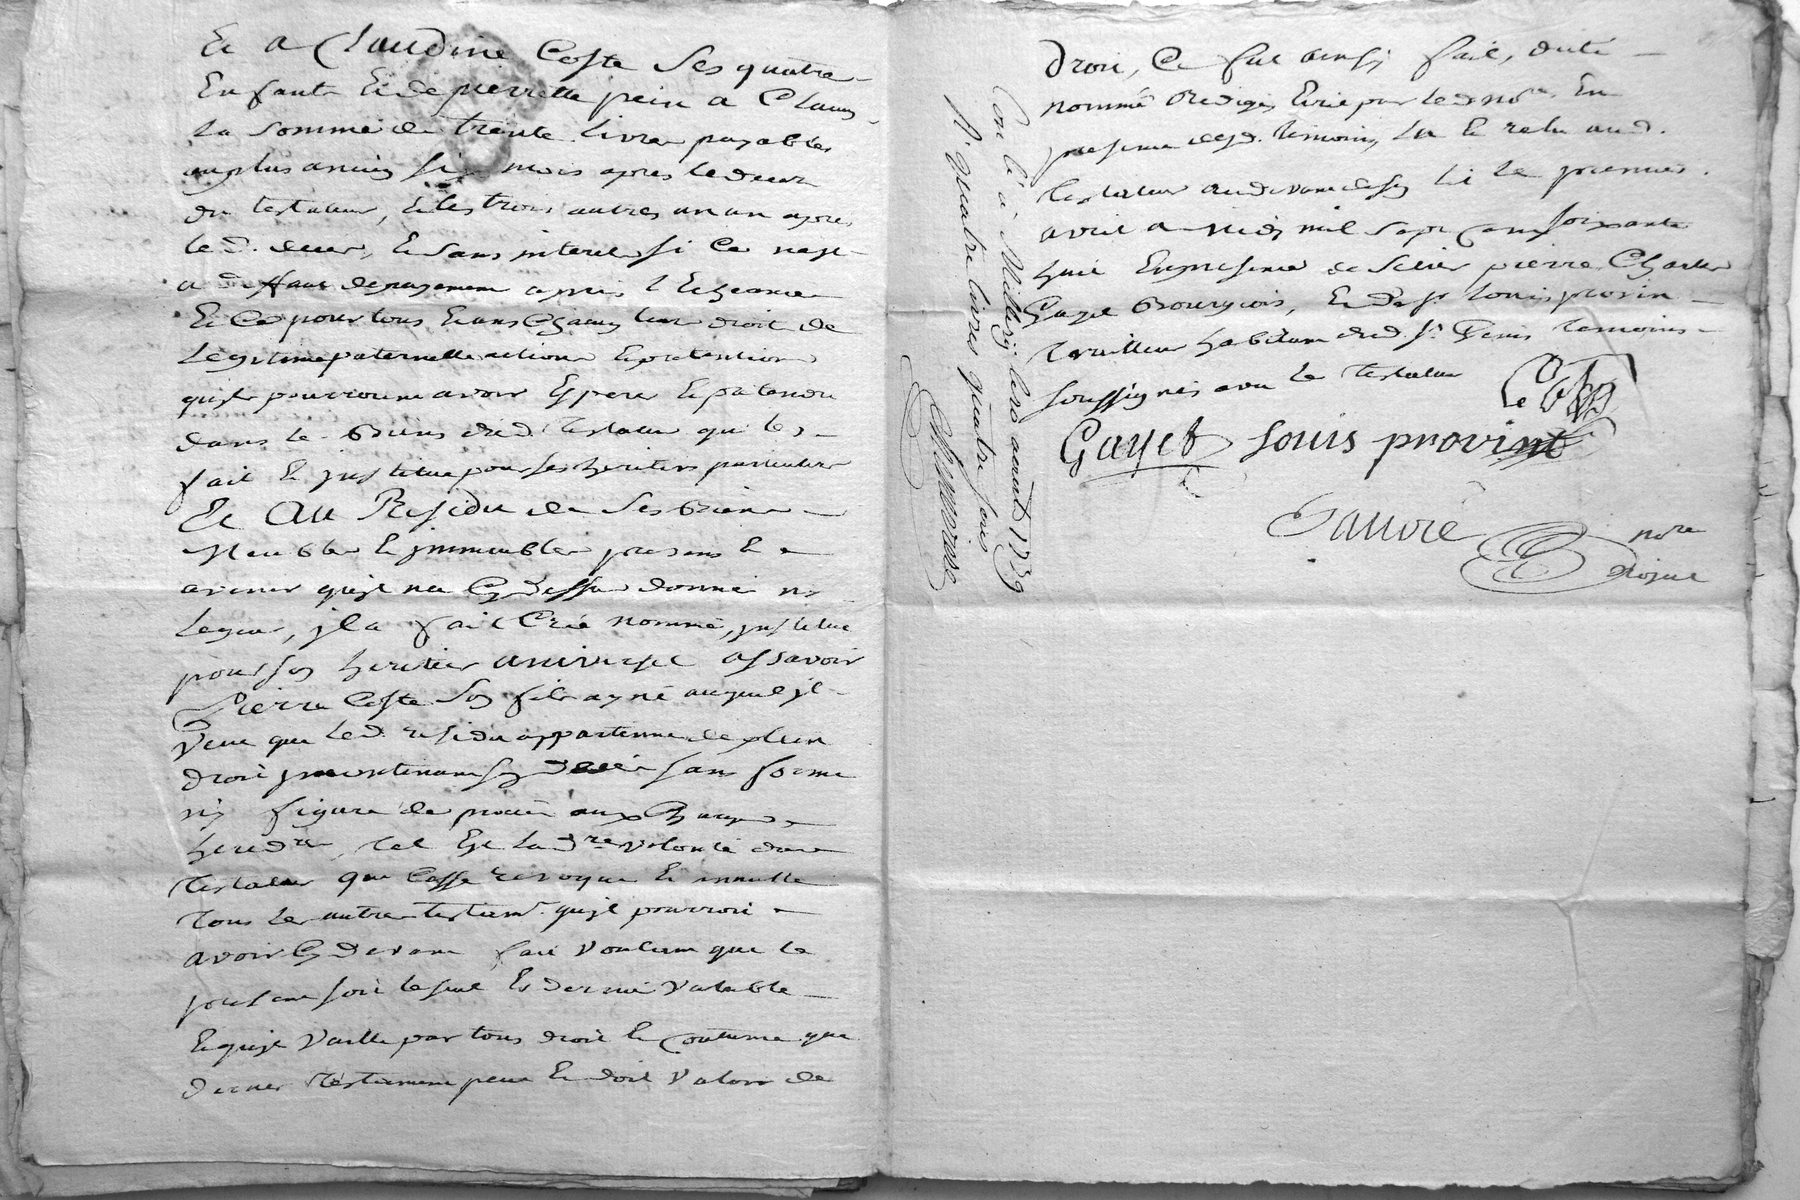 Et a Claudine Coste ses quatre
Enfants Et de pierrette pein a Chacun
La somme de trente Livres payables
au plus ancien six mois apres le deces
du testateur, Et les trois autres un an apres
le d. deces, Et sans interets si Ce nest
a deffaut de payement apres l'Echeance
Et Ce pour tous Et uns Chacun leur droit de
Legitime paternelle actions Et pretentions
quils pourroient avoir Esperer Et pretendre
dans les Biens dud. Testateur qui les
fait Et institue pour ses heritiers particuliers
Et Au Residu de Ses Biens
Meubles Et immeubles presens Et a
avenir quil na Cy dessus donné ni
Legué, il a fait Créé nommé, institué
pour son heritier universel assavoir
Pierre Coste Son fils ayné auquel il
Veut que led. residu appartienne de plein
droit incontinant son deces sans forme
ny figure de proces aux Charges
hered.res, tel Est la d.re volonté dud.
Testateur que Casse revoque Et annulle
tous les autres testam.t quil pourroit
avoir Cy devant fait Voulant que le
present soit le seul Et dernier Valable
Et quil Vaille par tous droit Et Coutume que
dernier Testament peut Et doit Valoir de
droit, Ce fut ainsy fait, dicté
nommé Redigé, Ecrit par led. no.re En
presence desd. temoins, lu Et relu aud.
testateur au devant de son lit le premier
avril a midy mil Sept Cent soixante
huit En presence de Sieur pierre Charles
Gayet Bourgeois, Et de s.r Louis provin
travailleur habitans dud. S.t Temoins
soussignés avec le Testateur
Coste
Gayet Louis provint
no.re
Royal
Con lé à Millery le 10 aoust 1739
R. quatre livres quatre sous